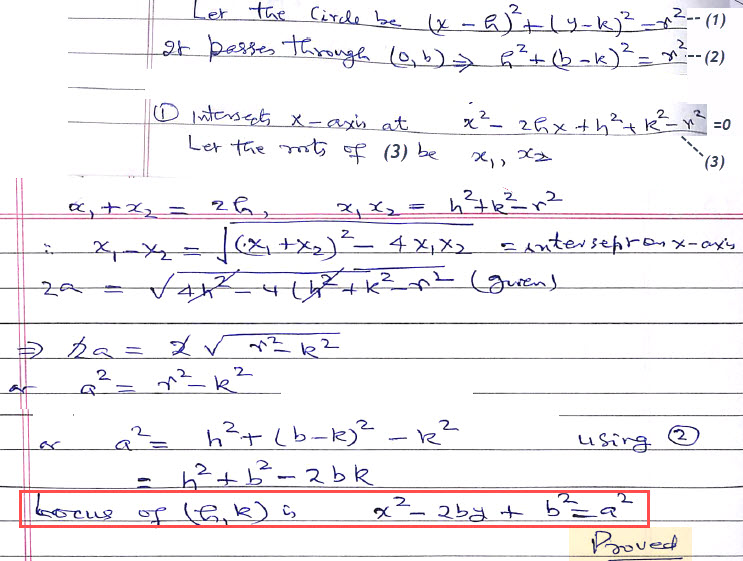 Let the Circle be (x - h)² + (y - k)² = r² -- (1)
It passes through (0, b) ⇒ h² + (b - k)² = r² --- (2)
① Intersects x-axis at x² - 2hx + h² + k² - r² = 0
Let the roots of (3) be x₁, x₂ (3)
x₁ + x₂ = 2h, x₁ x₂ = h² + k² - r²
∴ x₁ - x₂ = √((x₁ + x₂)² - 4x₁x₂) = intersept on x-axis
2a = √(4h² - 4(h² + k² - r²) (given)
⇒ 2a = 2 √(r² - k²)
or a² = r² - k²
or a² = h² + (b - k)² - k² using ②
= h² + b² - 2bk
Locus of (h, k) is x² - 2by + b² = a²
Proved